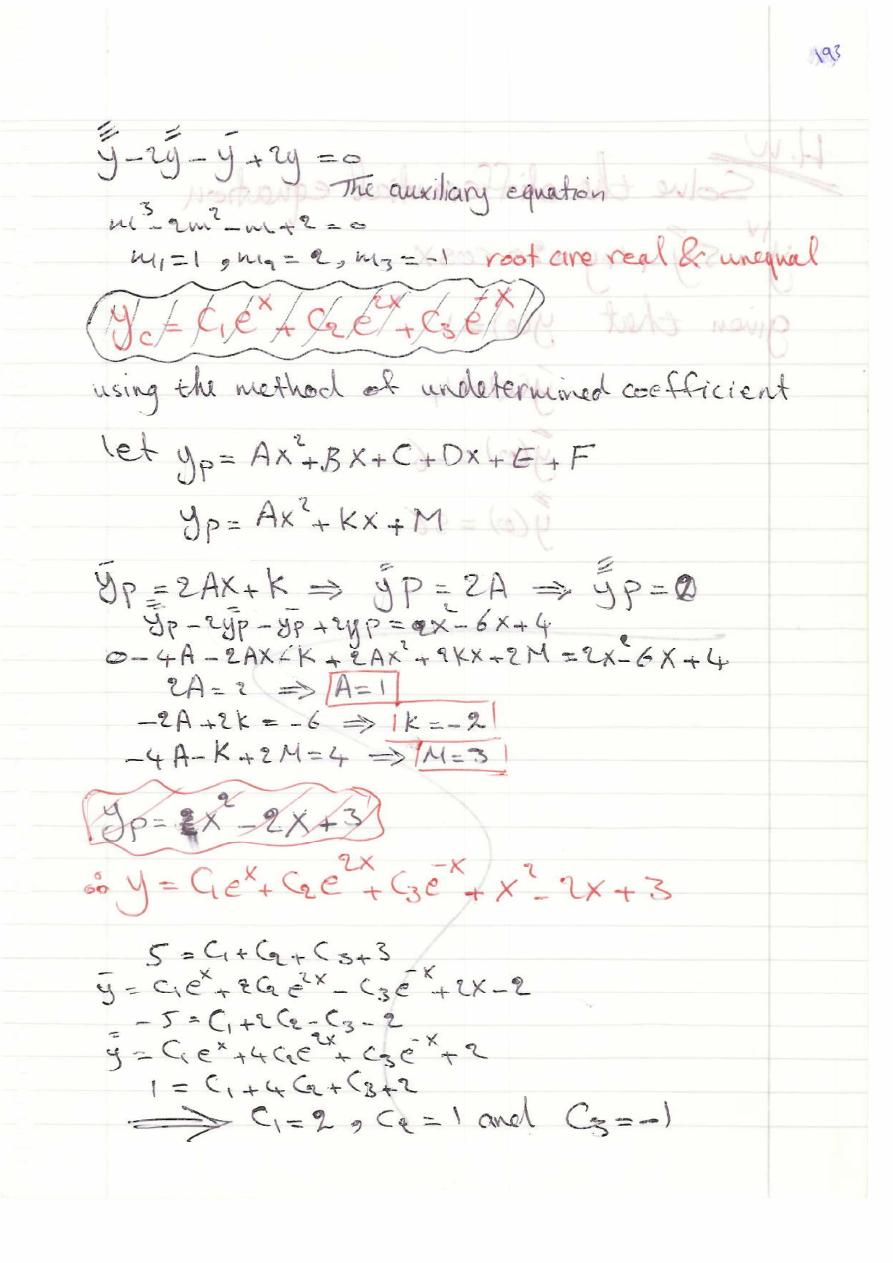 193
y̿̄ - 2y̿ - ȳ + 2y = 0
The auxiliary equation
m³ - 2m² - m + 2 = 0
m₁ = 1 , m₂ = 2 , m₃ = -1 root are real & unequal
y_c = C₁eˣ + C₂e²ˣ + C₃e⁻ˣ
using the method of undetermined coefficient
let y_p = Ax² + Bx + C + Dx + E + F
y_p = Ax² + Kx + M
ȳ_p = 2Ax + K ⇒ y̿_p = 2A ⇒ y̿̄_p = 0
y̿̄_p - 2y̿_p - ȳ_p + 2y_p = 2x² - 6x + 4
0 - 4A - 2Ax - K + 2Ax² + 2Kx + 2M = 2x² - 6x + 4
2A = 2 ⇒ A = 1
-2A + 2K = -6 ⇒ K = -2
-4A - K + 2M = 4 ⇒ M = 3
y_p = x² - 2x + 3
∴ y = C₁eˣ + C₂e²ˣ + C₃e⁻ˣ + x² - 2x + 3
5 = C₁ + C₂ + C₃ + 3
ȳ = C₁eˣ + 2C₂e²ˣ - C₃e⁻ˣ + 2x - 2
-5 = C₁ + 2C₂ - C₃ - 2
y̿ = C₁eˣ + 4C₂e²ˣ + C₃e⁻ˣ + 2
1 = C₁ + 4C₂ + C₃ + 2
⟹ C₁ = 2 , C₂ = 1 and C₃ = -1